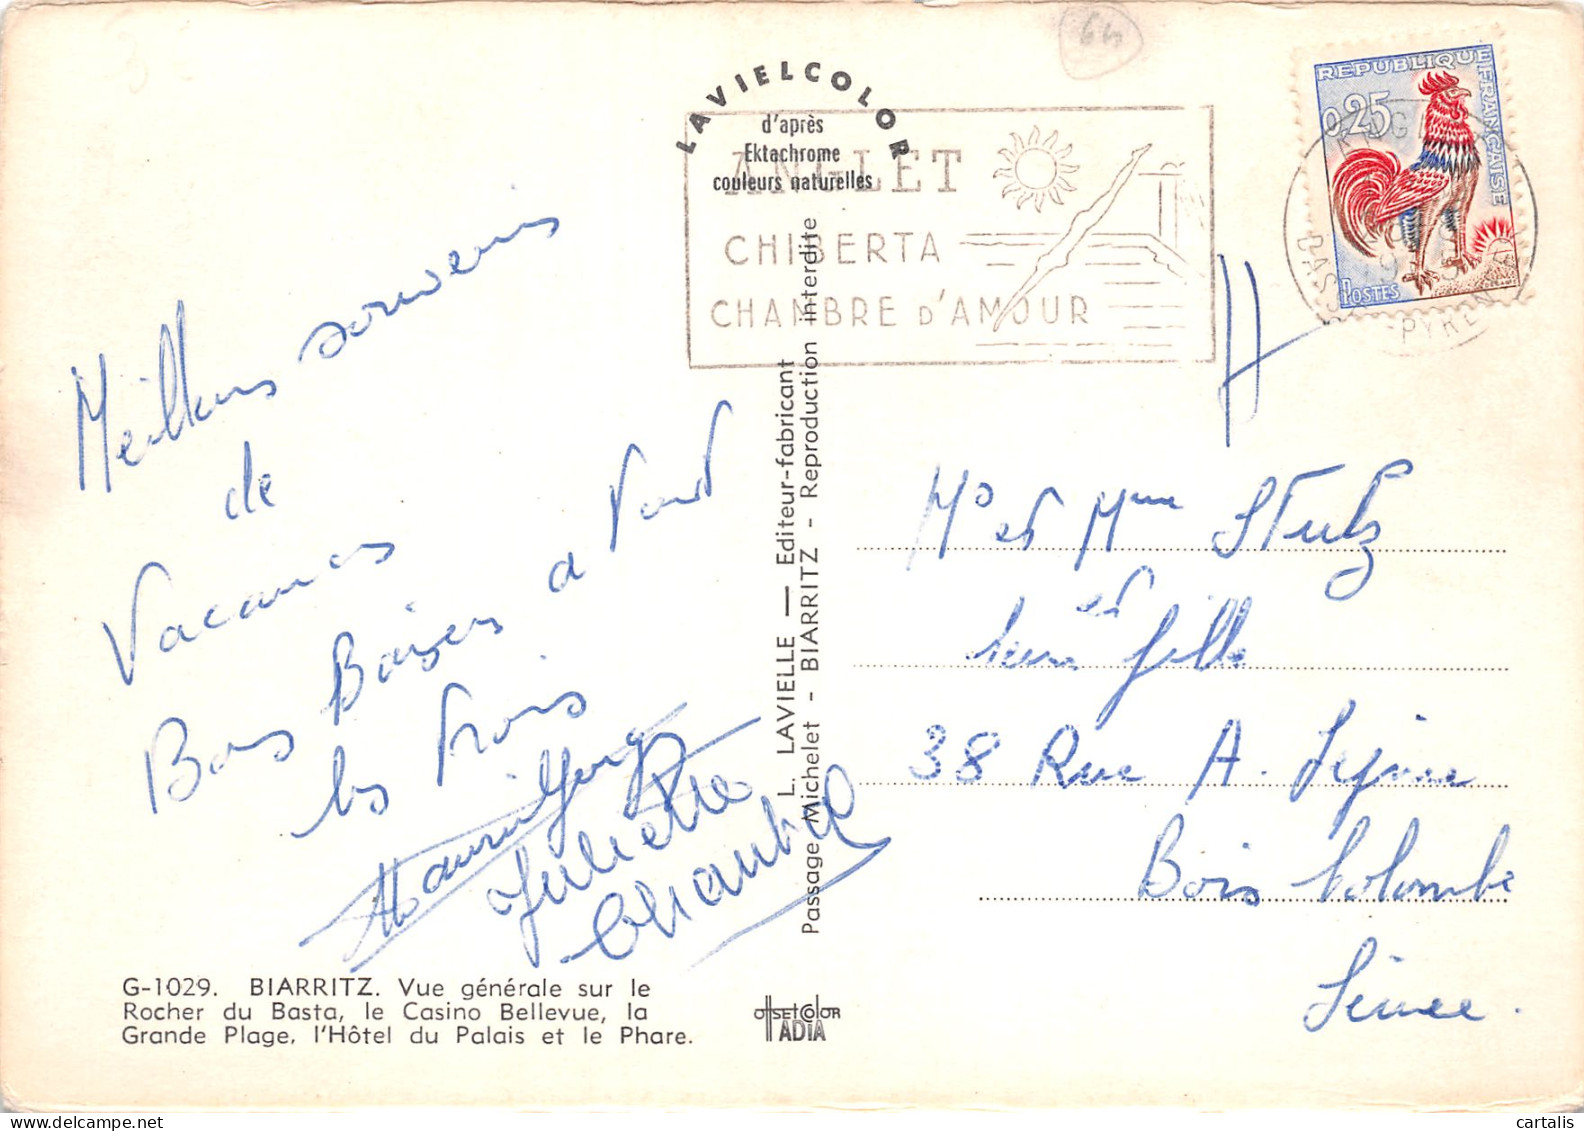 64
LAVIELCOLOR
d'après
Ektachrome
couleurs naturelles
ANGLET
CHIBERTA
CHAMBRE D'AMOUR
REPUBLIQUE FRANCAISE
0,25
POSTES
Meilleurs souvenirs
de
Vacances
Bons Baisers a tous
les trois
Juliette
L. LAVIELLE — Editeur-fabricant
Passage Michelet - BIARRITZ - Reproduction interdite
Mr et Mme Stulz
et
leur fille
38 Rue A.
Bois Colombe
Seine.
G-1029. BIARRITZ. Vue générale sur le
Rocher du Basta, le Casino Bellevue, la
Grande Plage, l'Hôtel du Palais et le Phare.
OffSETCOlOR
IADIA
cartalis